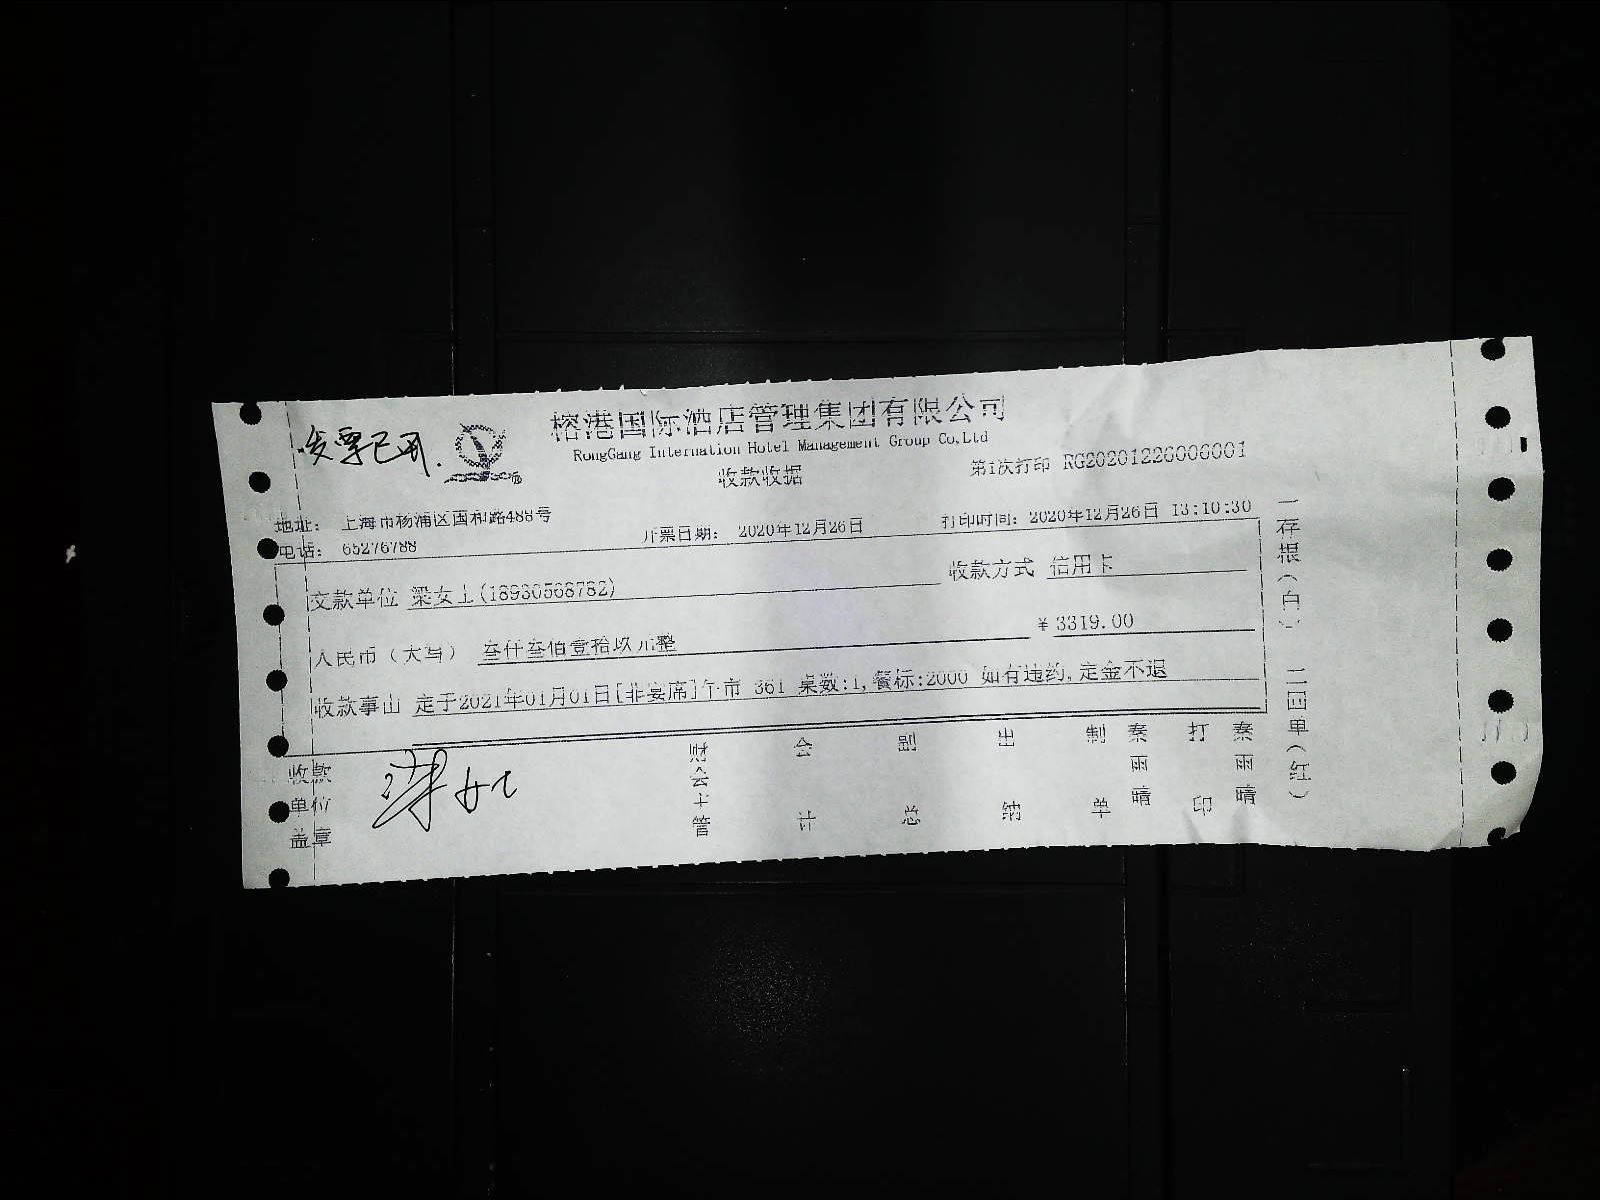 发票已开.
榕港国际酒店管理集团有限公司
RongGang Internation Hotel Management Group Co,Ltd
收款收据
第1次打印 RG20201226006001
地址: 上海市杨浦区国和路488号
电话: 65276788
开票日期: 2020年12月26日
打印时间: 2020年12月26日 13:10:30
交款单位 梁女士(18930568782)
收款方式 信用卡
人民币(大写) 叁仟叁佰壹拾玖元整
¥ 3319.00
收款事由 定于2021年01月01日[非宴席]午市 361 桌数:1,餐标:2000 如有违约,定金不退
收款单位盖章
财会主管
会计
出纳
制单
秦雨晴
打印
秦雨晴
一存根(白) 二回单(红)